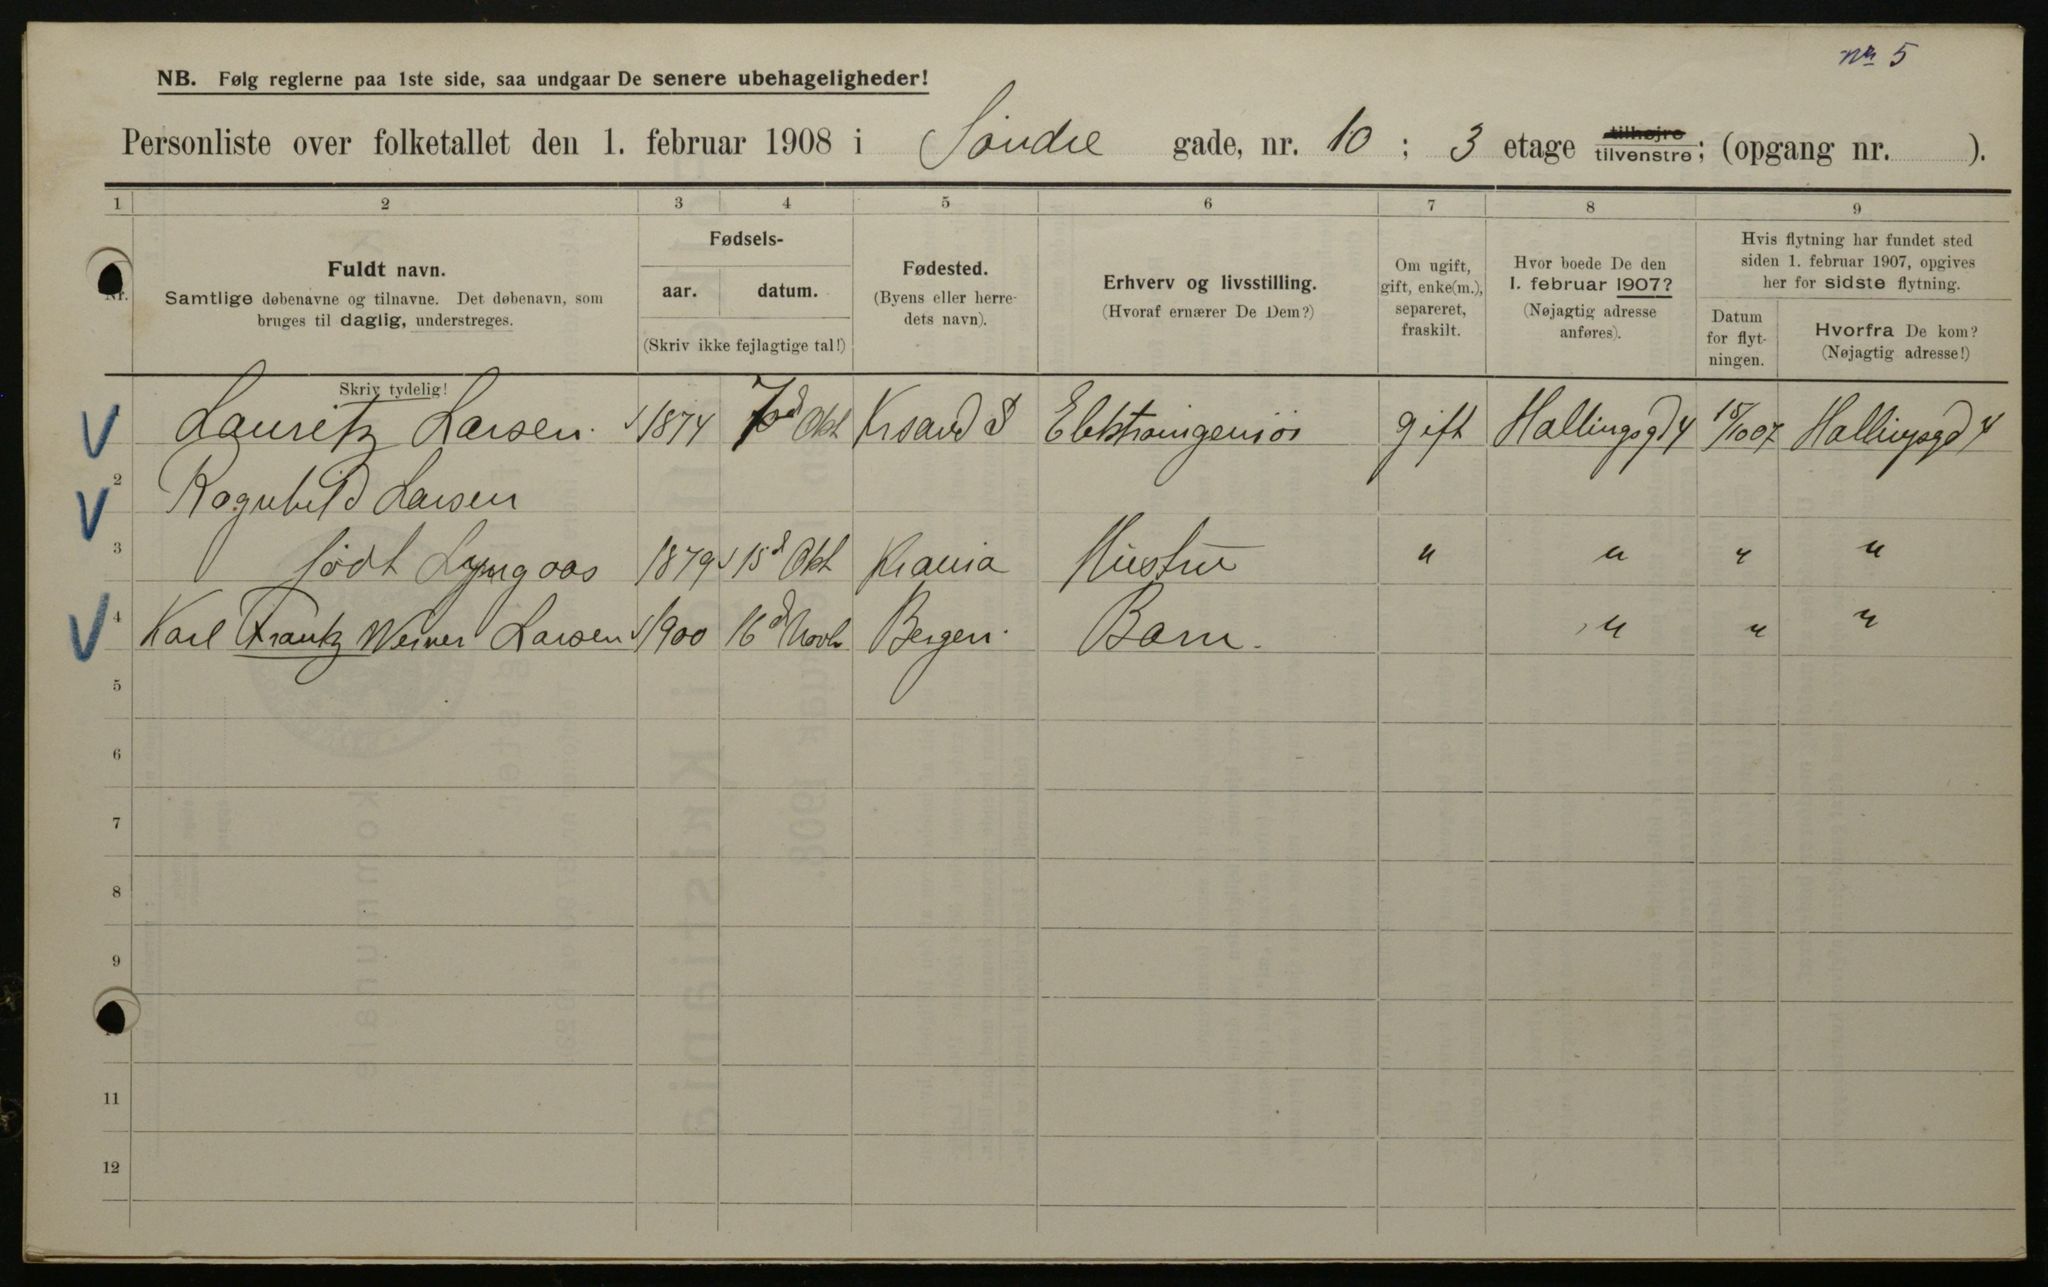 nr 5
NB. Følg reglerne paa 1ste side, saa undgaar De senere ubehageligheder!
Personliste over folketallet den 1. februar 1908 i Søndre gade, nr. 10 ; 3 etage tilhøjre tilvenstre; (opgang nr. ).
1 2 3 4 5 6 7 8 9
Nr.
Fuldt navn.
Samtlige døbenavne og tilnavne. Det døbenavn, som
bruges til daglig, understreges.
Skriv tydelig!
Fødsels-
aar. datum.
(Skriv ikke fejlagtige tal!)
Fødested.
(Byens eller herre-
dets navn).
Erhverv og livsstilling.
(Hvoraf ernærer De Dem?)
Om ugift,
gift, enke(m.),
separeret,
fraskilt.
Hvor boede De den
1. februar 1907?
(Nøjagtig adresse
anføres).
Hvis flytning har fundet sted
siden 1. februar 1907, opgives
her for sidste flytning.
Datum
for flyt-
ningen.
Hvorfra De kom?
(Nøjagtig adresse!)
Lauritz Larsen. 1874 7d Okt Krsand S Elektroingeniör gift Hallingsgd 4 15/10 07 Hallingsgd 4
2 Ragnhild Larsen
3 födt Lyngaas 1879 15d Okt Krania Hustru " " " "
4 Karl Frantz Werner Larsen 1900 16d Novbr Bergen. Barn. " " "
5
6
7
8
9
11
12